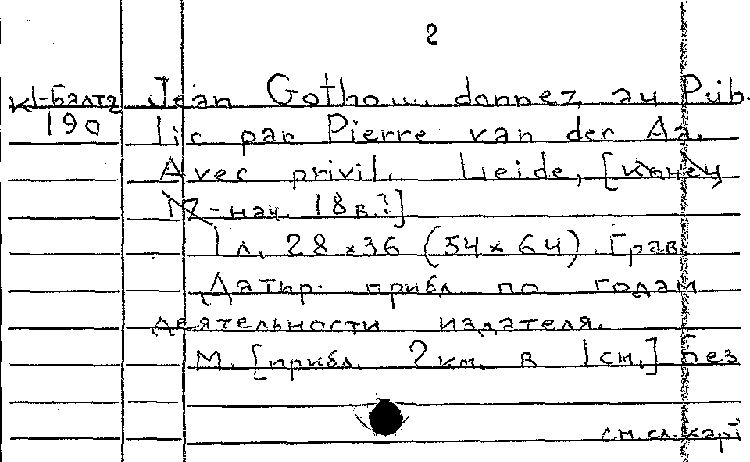 2
К1-Балт2 Jean Gotho... donnez au Pub
190 lic par Pierre van der Aa.
Avec privil. Leide, [конец
17-нач. 18 в.?]
1 л. 28 × 36 (54 × 64). Грав.
Датир. прибл. по годам
деятельности издателя.
М. [прибл. 2 км. в 1 см.] Без
см. сл. карт